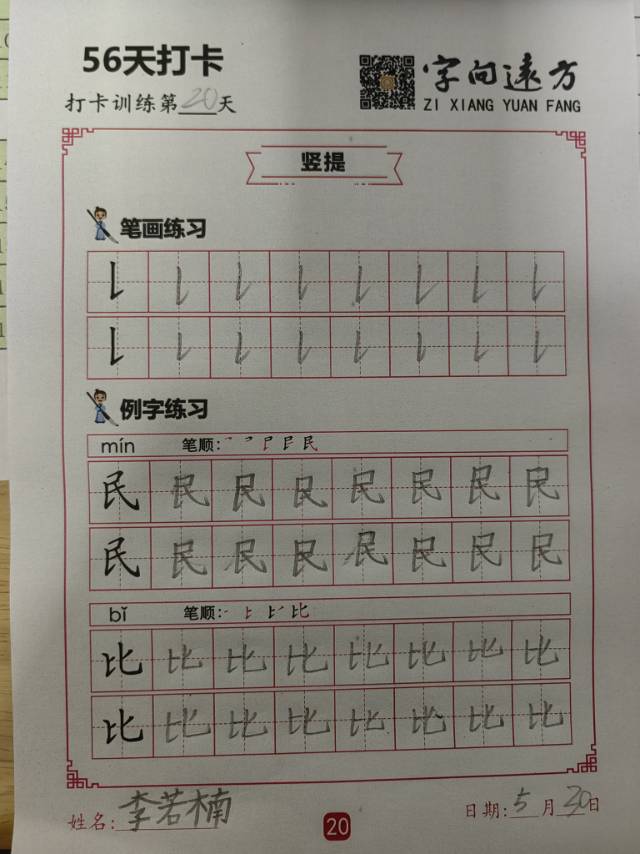 56天打卡
字向远方
打卡训练第20天
ZI XIANG YUAN FANG
竖提
笔画练习
例字练习
mín 笔顺:
民 民 民 民 民 民 民 民
民 民 民 民 民 民 民 民
bǐ 笔顺:
比 比 比 比 比 比 比 比
比 比 比 比 比 比 比 比
姓名: 李若楠 20 日期: 5月30日